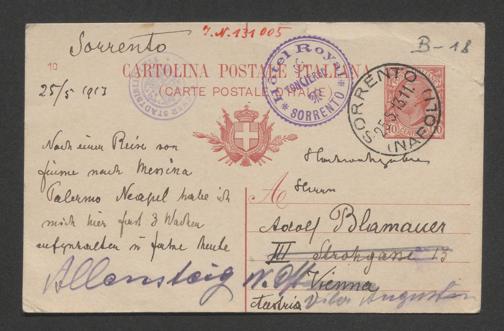 J.N. 131005
Sorrento
B-18
10
CARTOLINA POSTALE ITALIANA
(CARTE POSTALE D'ITALIE)
25/5 1913
Hôtel Royal
CONCIERGE
* SORRENTO *
SORRENTO
25.5.13.11
(NAPOLI)
Nach einer Reise von
Fiume nach Messina
Palermo Neapel habe ich
mich hier fast 3 Wochen
aufgehalten
heute
Herrn
A
Adolf Blamauer
III Strohgasse 13
Allensteig N. Öst
Vienna
Austria
Villa Augustin